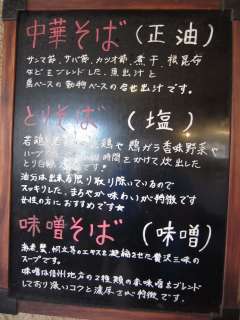 中華そば(正油)
サンマ節、サバ節、カツオ節、煮干、根昆布
などをブレンドした、魚出汁と
鳥ベースの動物ベースの合せ出汁です。
とりそば(塩)
若鶏 鶏や 鶏ガラと香味野菜や
ハーブ 時間をかけて炊出した
とり白
油分は出来る限り取り除いているので
スッキリした、まろやかな味わいが特徴です
女性の方におすすめです★
味噌そば(味噌)
海老、蟹、帆立等のエキスを凝縮させた贅沢三昧の
スープです。
味噌は信州地方の2種類の米味噌をブレンド
しており深いコクと濃厚さが特徴です。